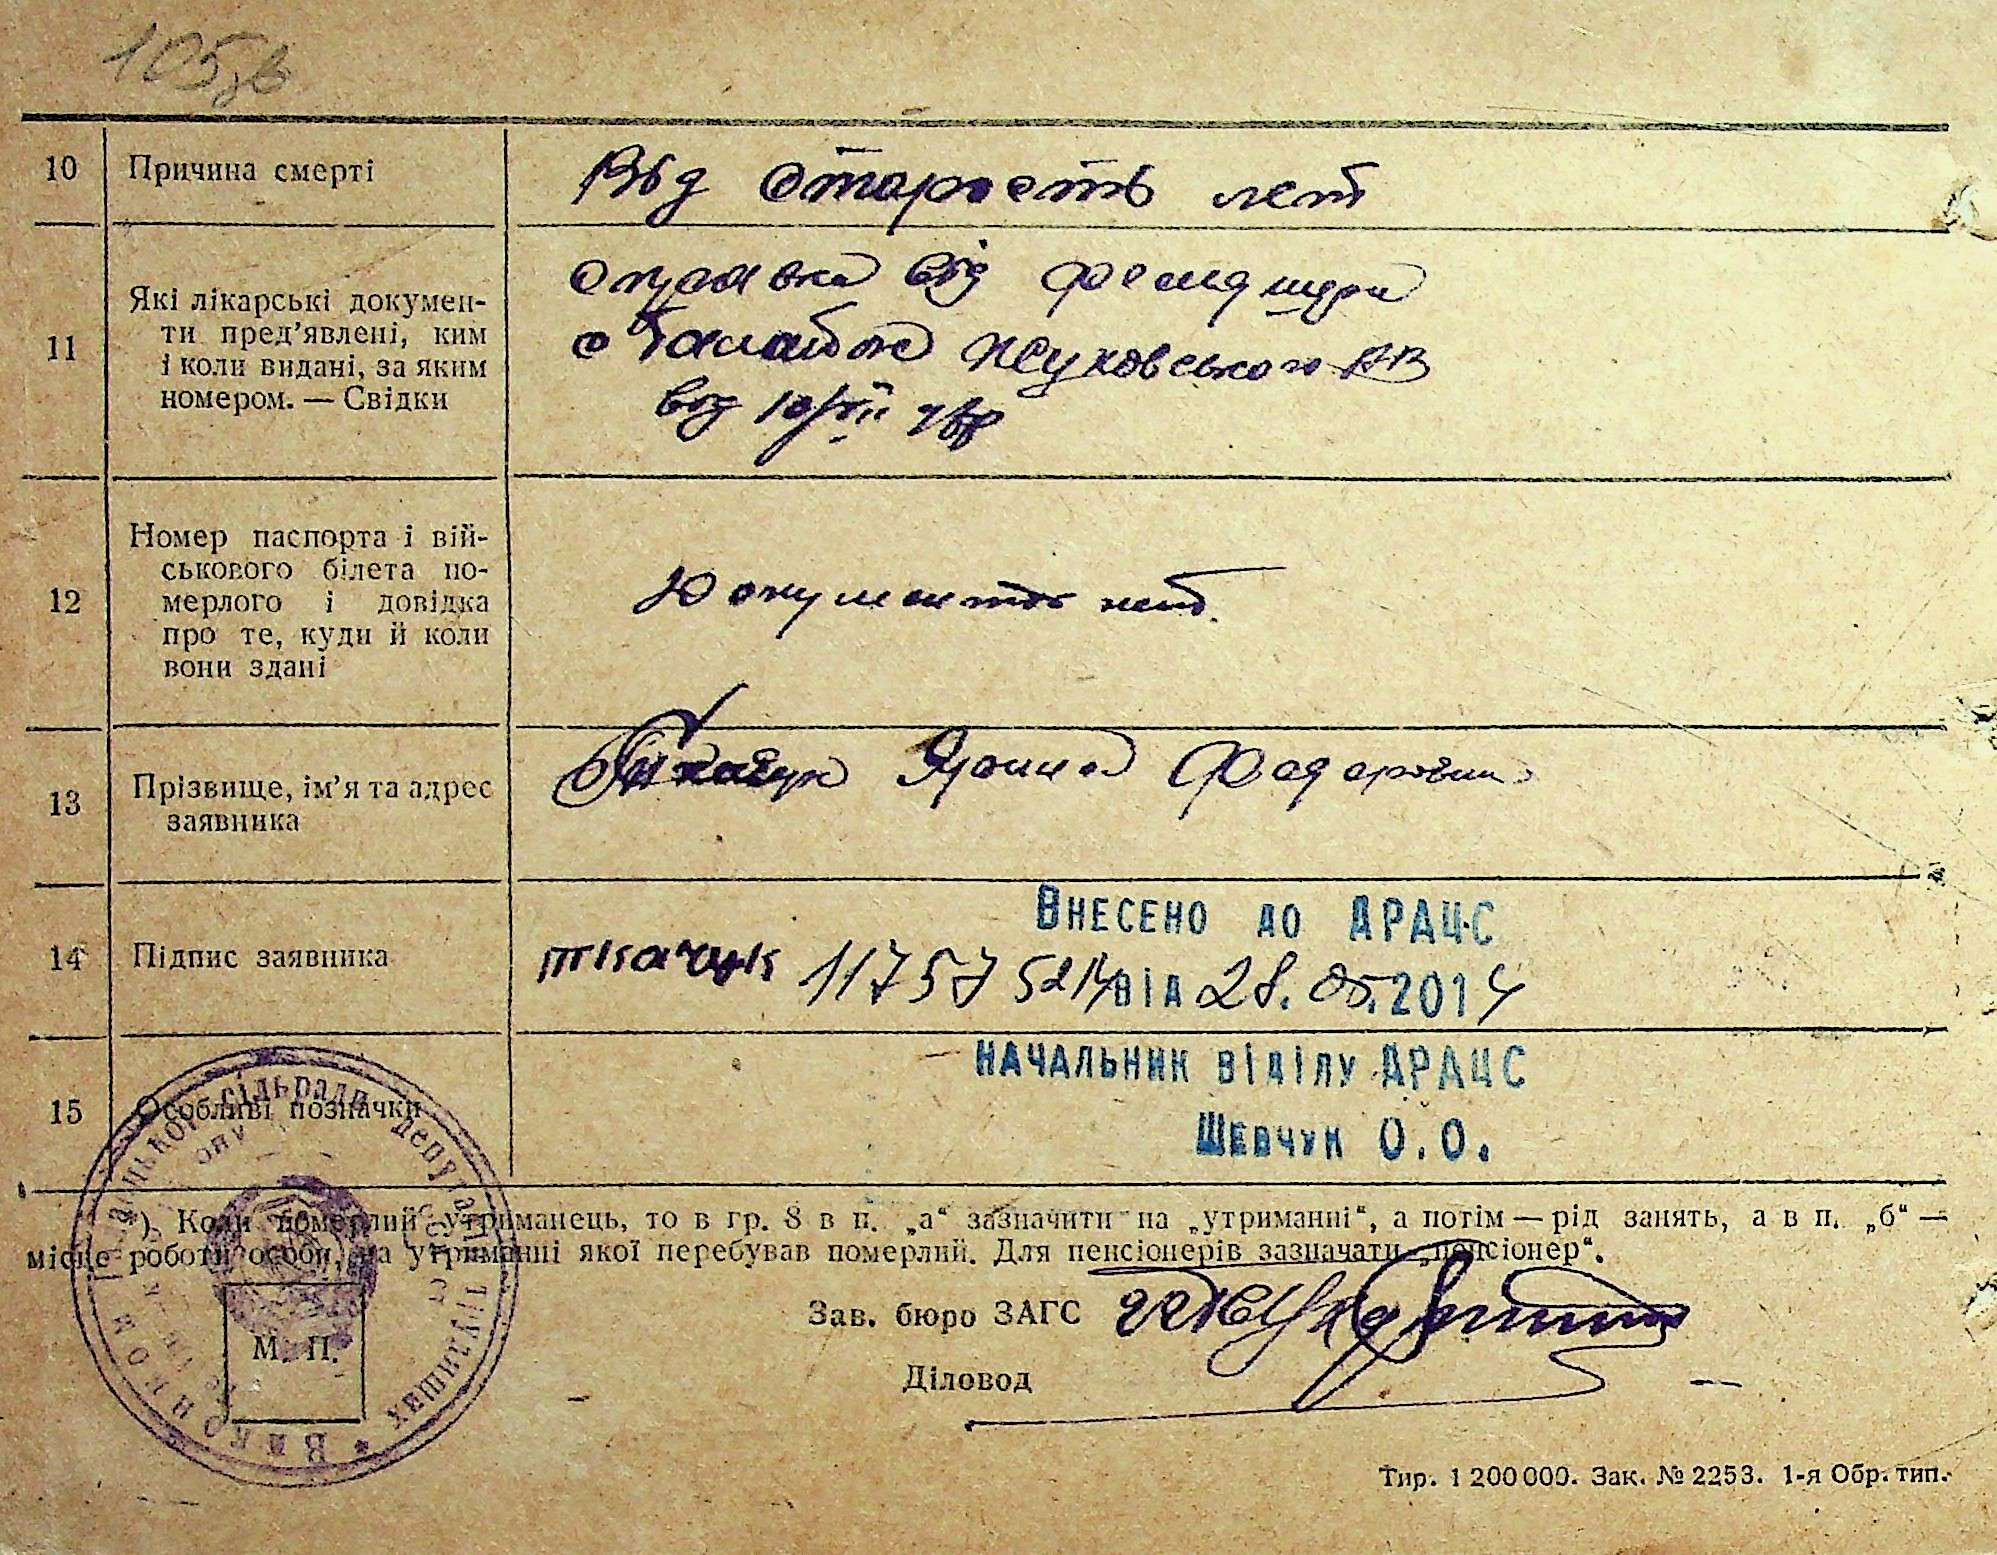 105
10 Причина смерті Від старость лет
11 Які лікарські докумен-
ти пред'явлені, ким
і коли видані, за яким
номером. — Свідки
справка від фелдшера
с Жуковського АВ
від
12 Номер паспорта і вій-
ськового білета по-
мерлого і довідка
про те, куди й коли
вони здані
Документов нет.
13 Прізвище, ім'я та адрес
заявника
Ткачук Федоровна
14 Підпис заявника ткачук
Внесено до ДРАЦС
від 28.05.2014
15 Особливі позначки
Начальник відділу ДРАЦС
Шевчук О.О.
*) Коли померлий утриманець, то в гр. 8 в п. „а“ зазначити на „утриманні“, а потім — рід занять, а в п. „б“ —
місце роботи особи, на утриманні якої перебував померлий. Для пенсіонерів зазначати „пенсіонер“.
Зав. бюро ЗАГС
Діловод
М. П.
сільради депутатів трудящих * Виконком
Тир. 1 200 000. Зак. № 2253. 1-я Обр. тип.